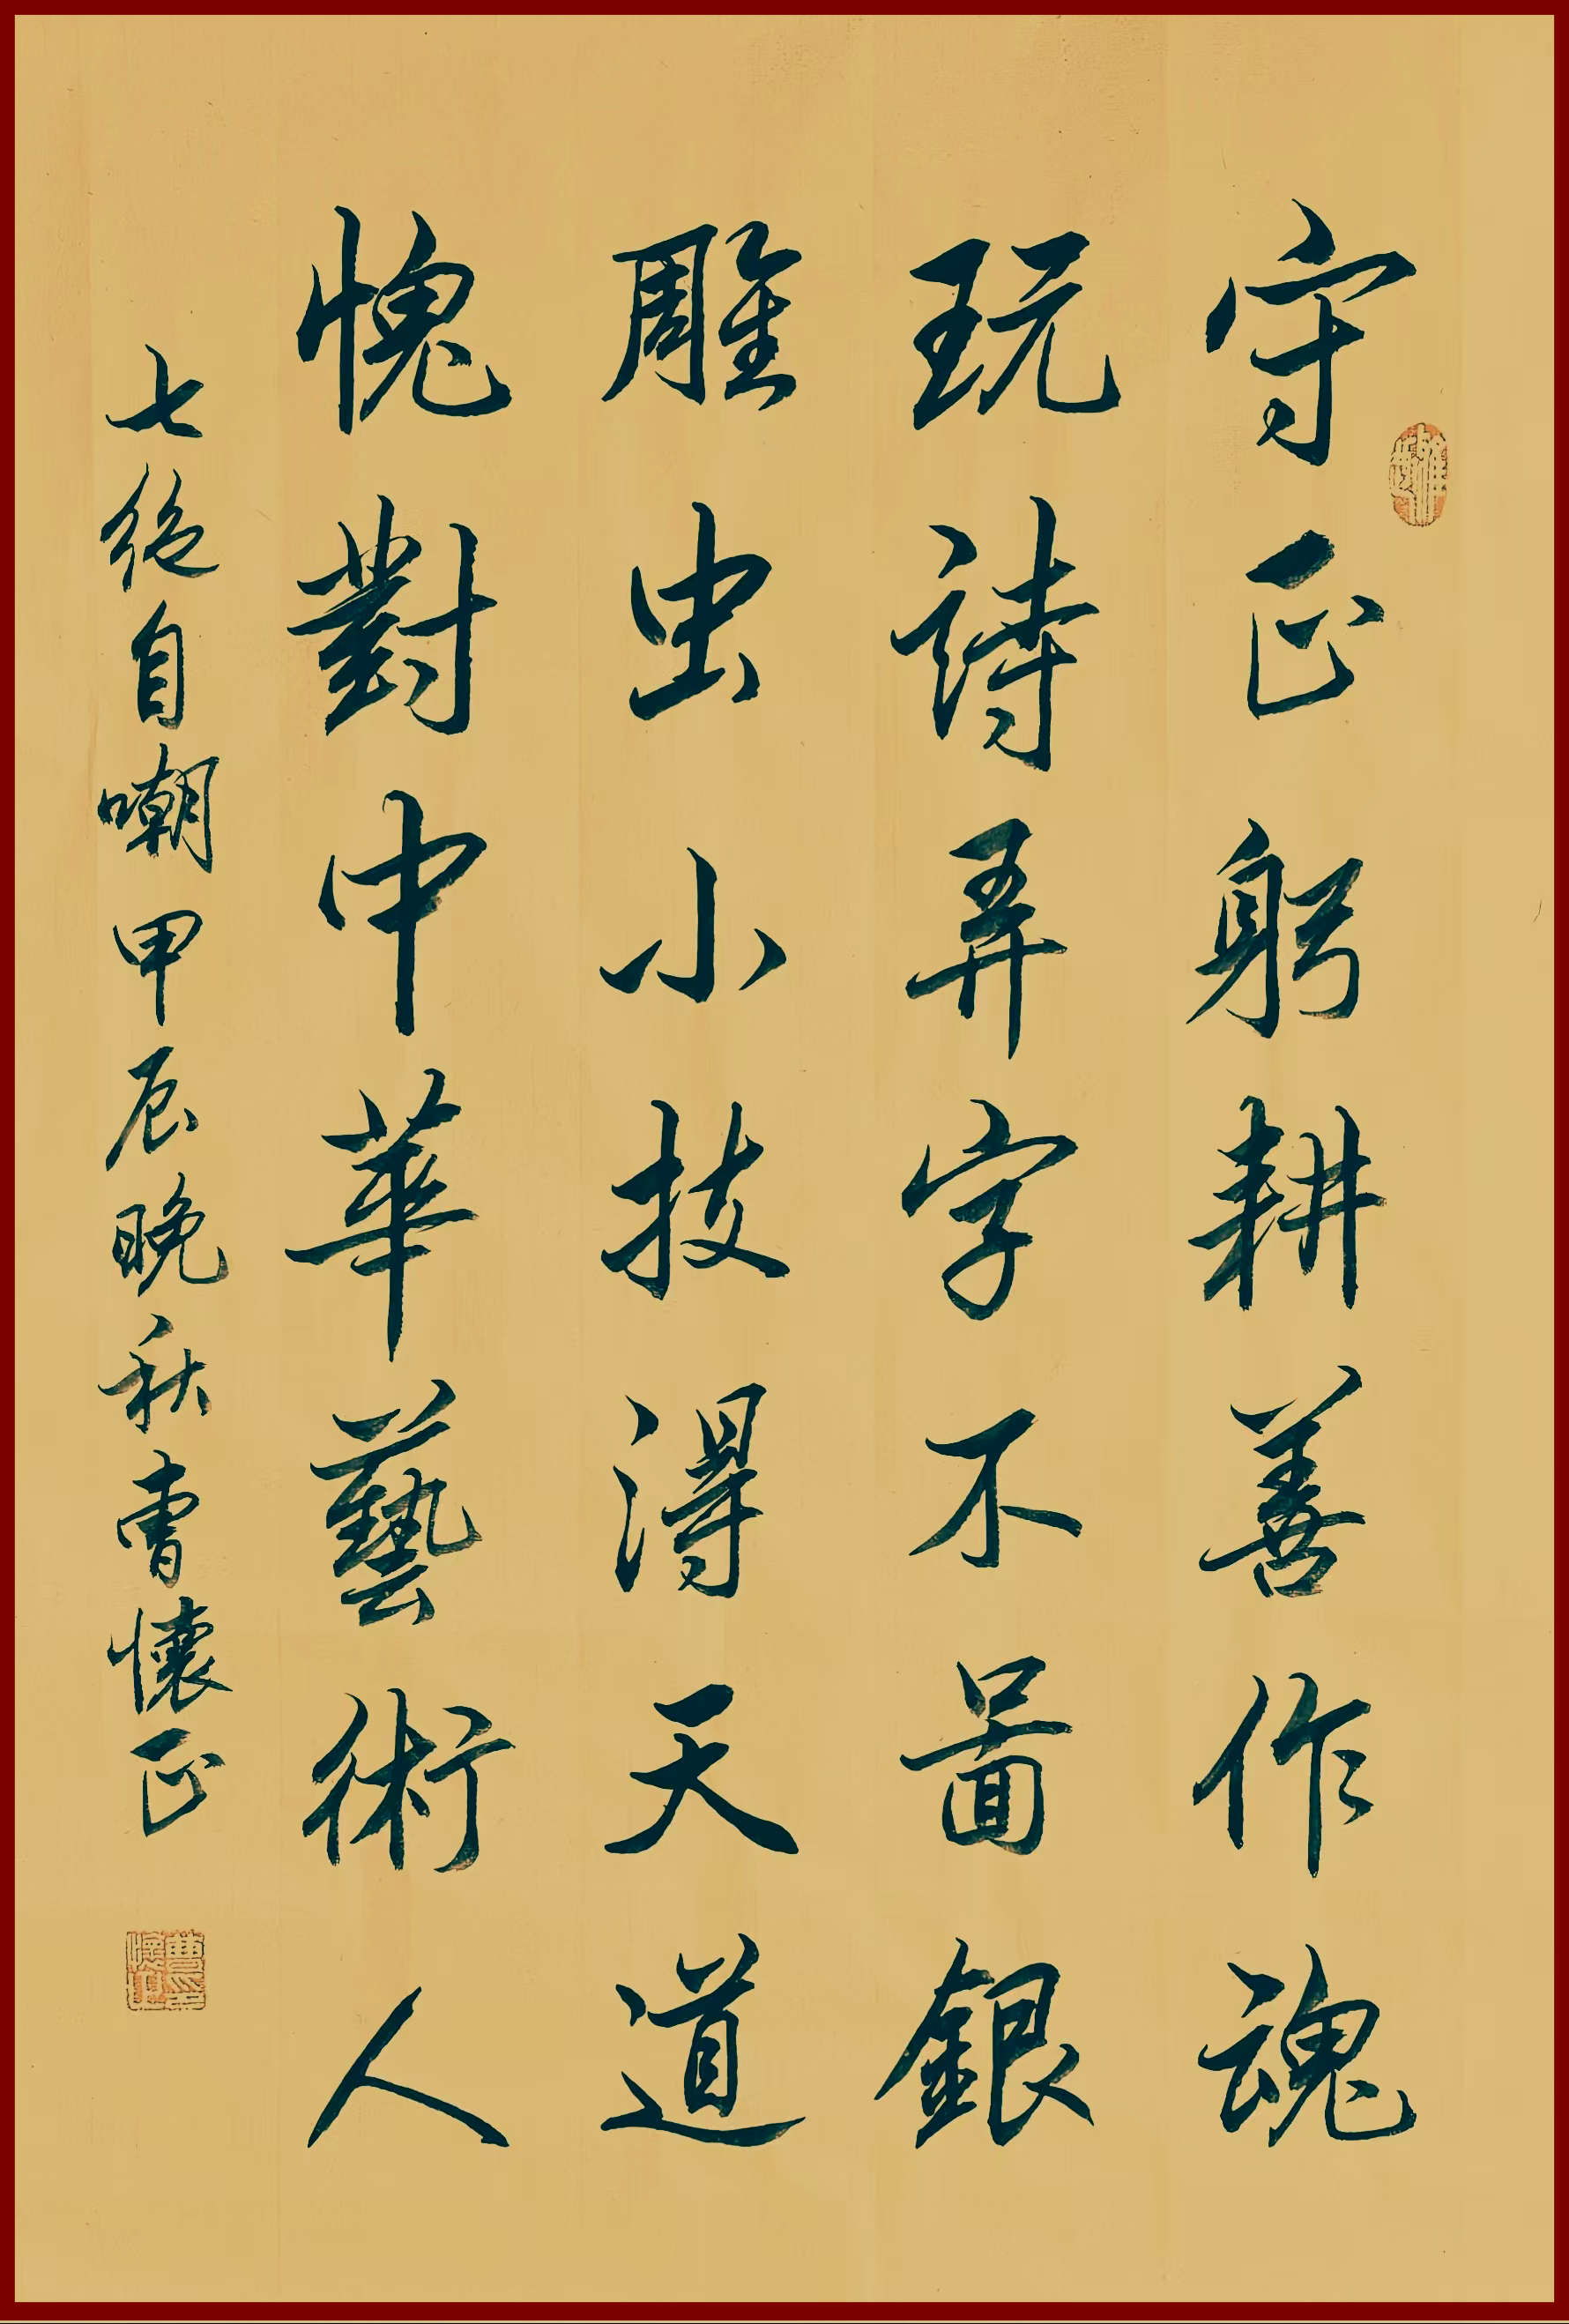 守正躬耕善作魂
玩詩弄字不啚銀
雕虫小技得天道
愧對中華藝術人
七絕自嘲甲辰晚秋曹懷正
曹印懷正